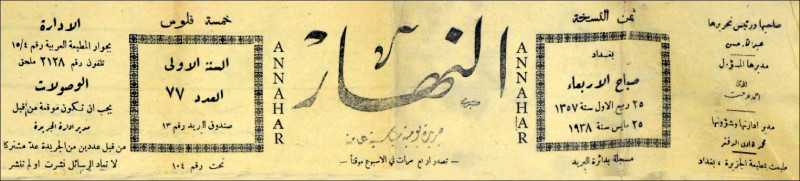 صاحبها ورئيس تحريرها
مديرها المسؤول
مدير ادارتها وشؤونها
طبعت بمطبعة الجزيرة ، بغداد
ثمن النسخة
بغداد
صباح الاربعاء
٢٥ ربيع الاول سنة ١٣٥٧
٢٥ مايس سنة ١٩٣٨
مسجلة بدائرة البريد
ANNAHAR
النهار
جريدة يومية سياسية عامة
- تصدر اربع مرات في الاسبوع موقتاً -
ANNAHAR
خمسة فلوس
السنة الاولى
العدد ٧٧
صندوق البريد رقم ١٣
تحت رقم ١٠٤
الادارة
بجوار المطبعة العربية رقم ١٥/٤
تلفون رقم ٢١٢٨ ملحق
الوصولات
يجب ان تكون موقعة من قبل
مدير ادارة الجريدة
من قبل عددين من الجريدة عد مشتركا
لا تعاد الرسائل نشرت او لم تنشر